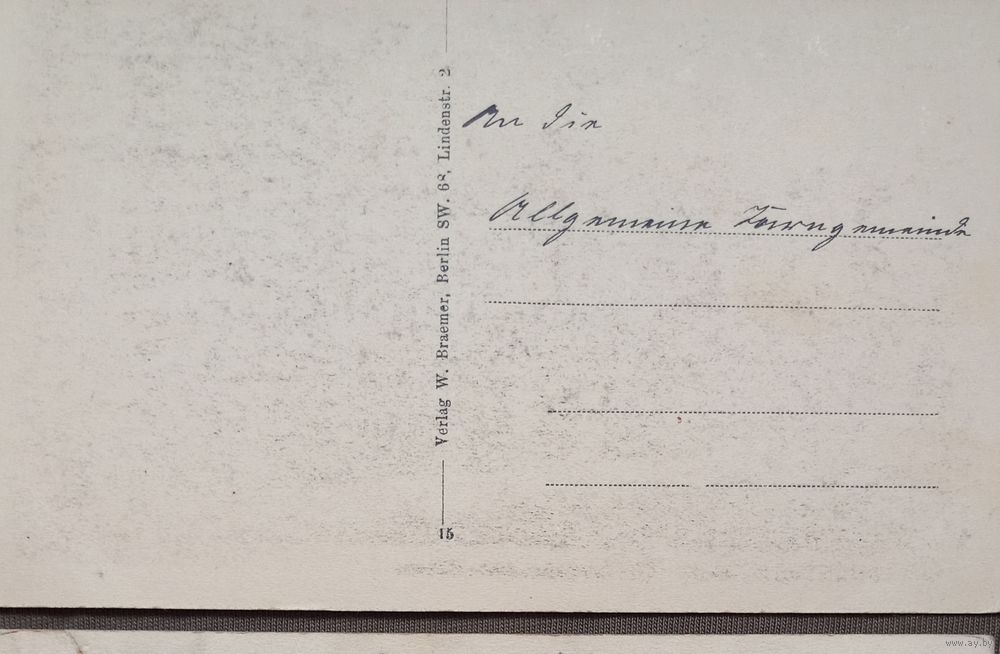 An die
Allgemeine Turngemeinde
Verlag W. Braemer, Berlin SW. 68, Lindenstr. 2
15
www.ay.by